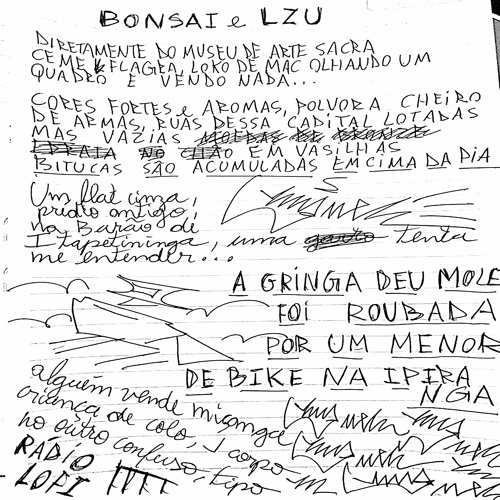 BONSAI e LZU
DIRETAMENTE DO MUSEU DE ARTE SACRA
CE ME FLAGRA, LOKO DE MAC OLHANDO UM
QUADRO E VENDO NADA...
CORES FORTES e AROMAS, POLVORA CHEIRO
DE ARMAS, RUAS DESSA CAPITAL LOTADAS
MAS VAZIAS MOEDAS DE BRONZE
NO CHÃO EM VASILHAS
BITUCAS SÃO ACUMULADAS EM CIMA DA PIA
Um flat cinza,
prédio antigo,
na Barão de
Itapetininga, uma garota tenta
me entender...
A GRINGA DEU MOLE
FOI ROUBADA
POR UM MENOR
DE BIKE NA IPIRA
NGA
alguém vende miçanga
criança de colo, 1 corpo
no outro confuso, tipo
RÁDIO
LOPI